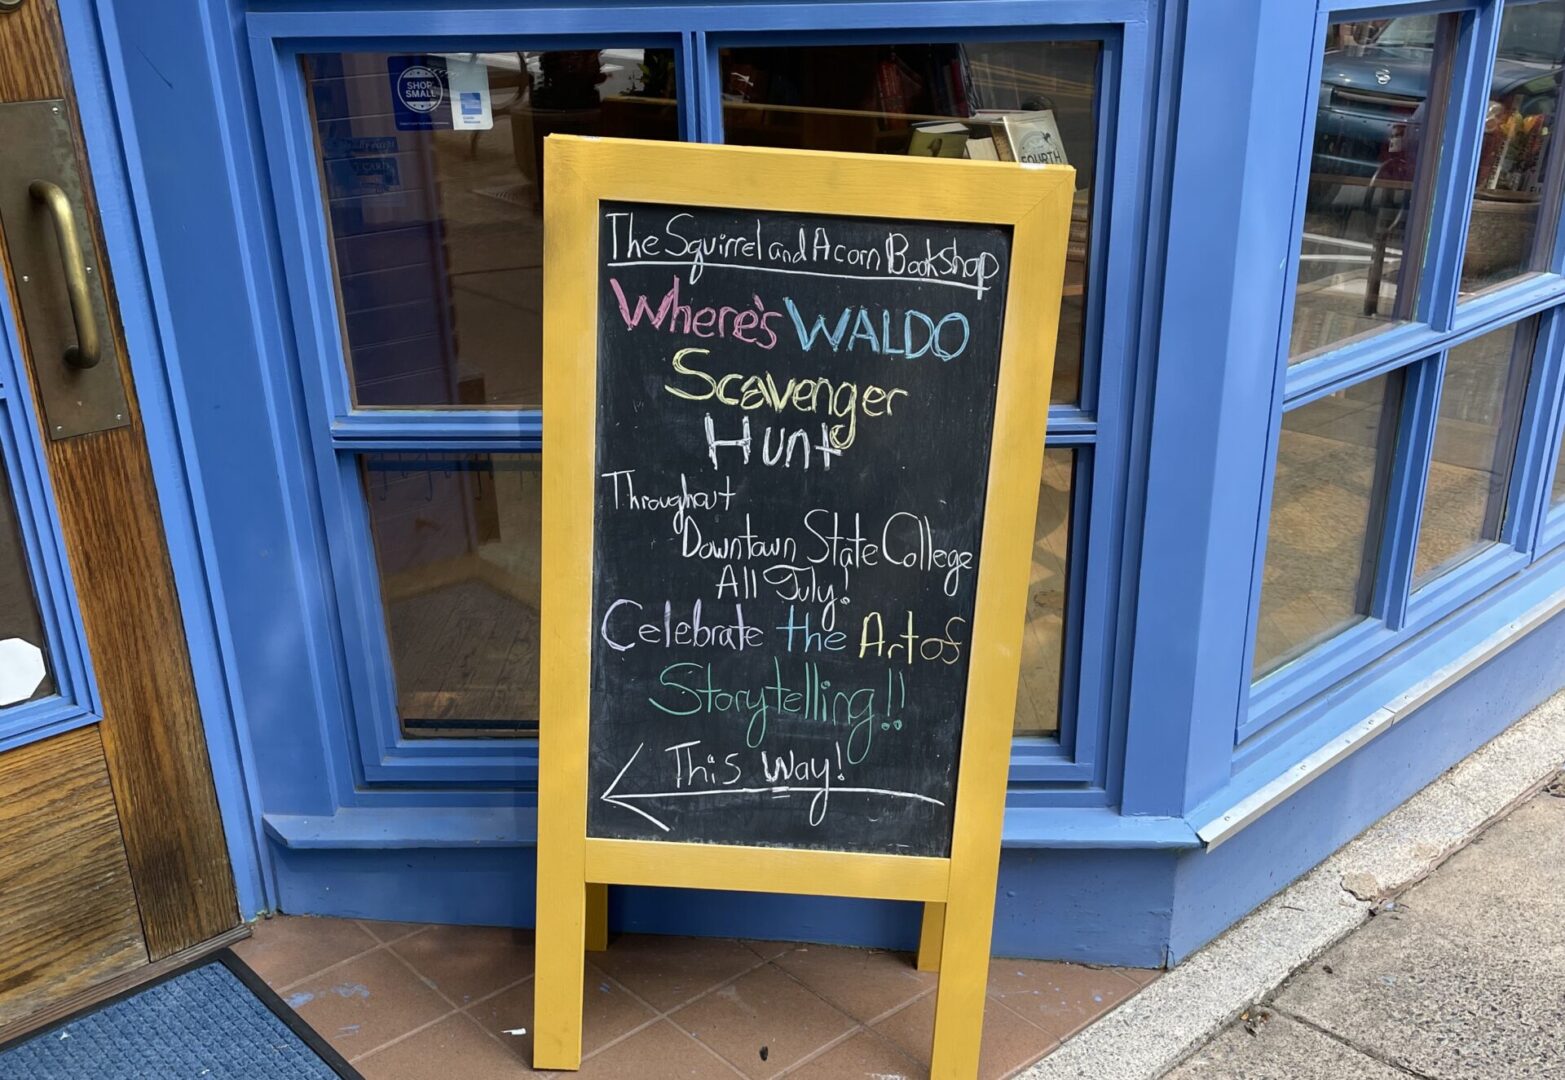 SHOP
SMALL
FOURTH
The Squirrel and Acorn Bookshop
Where's WALDO
Scavenger
Hunt
Throughout
Downtown State College
All July!
Celebrate the Art of
Storytelling!!
This Way!